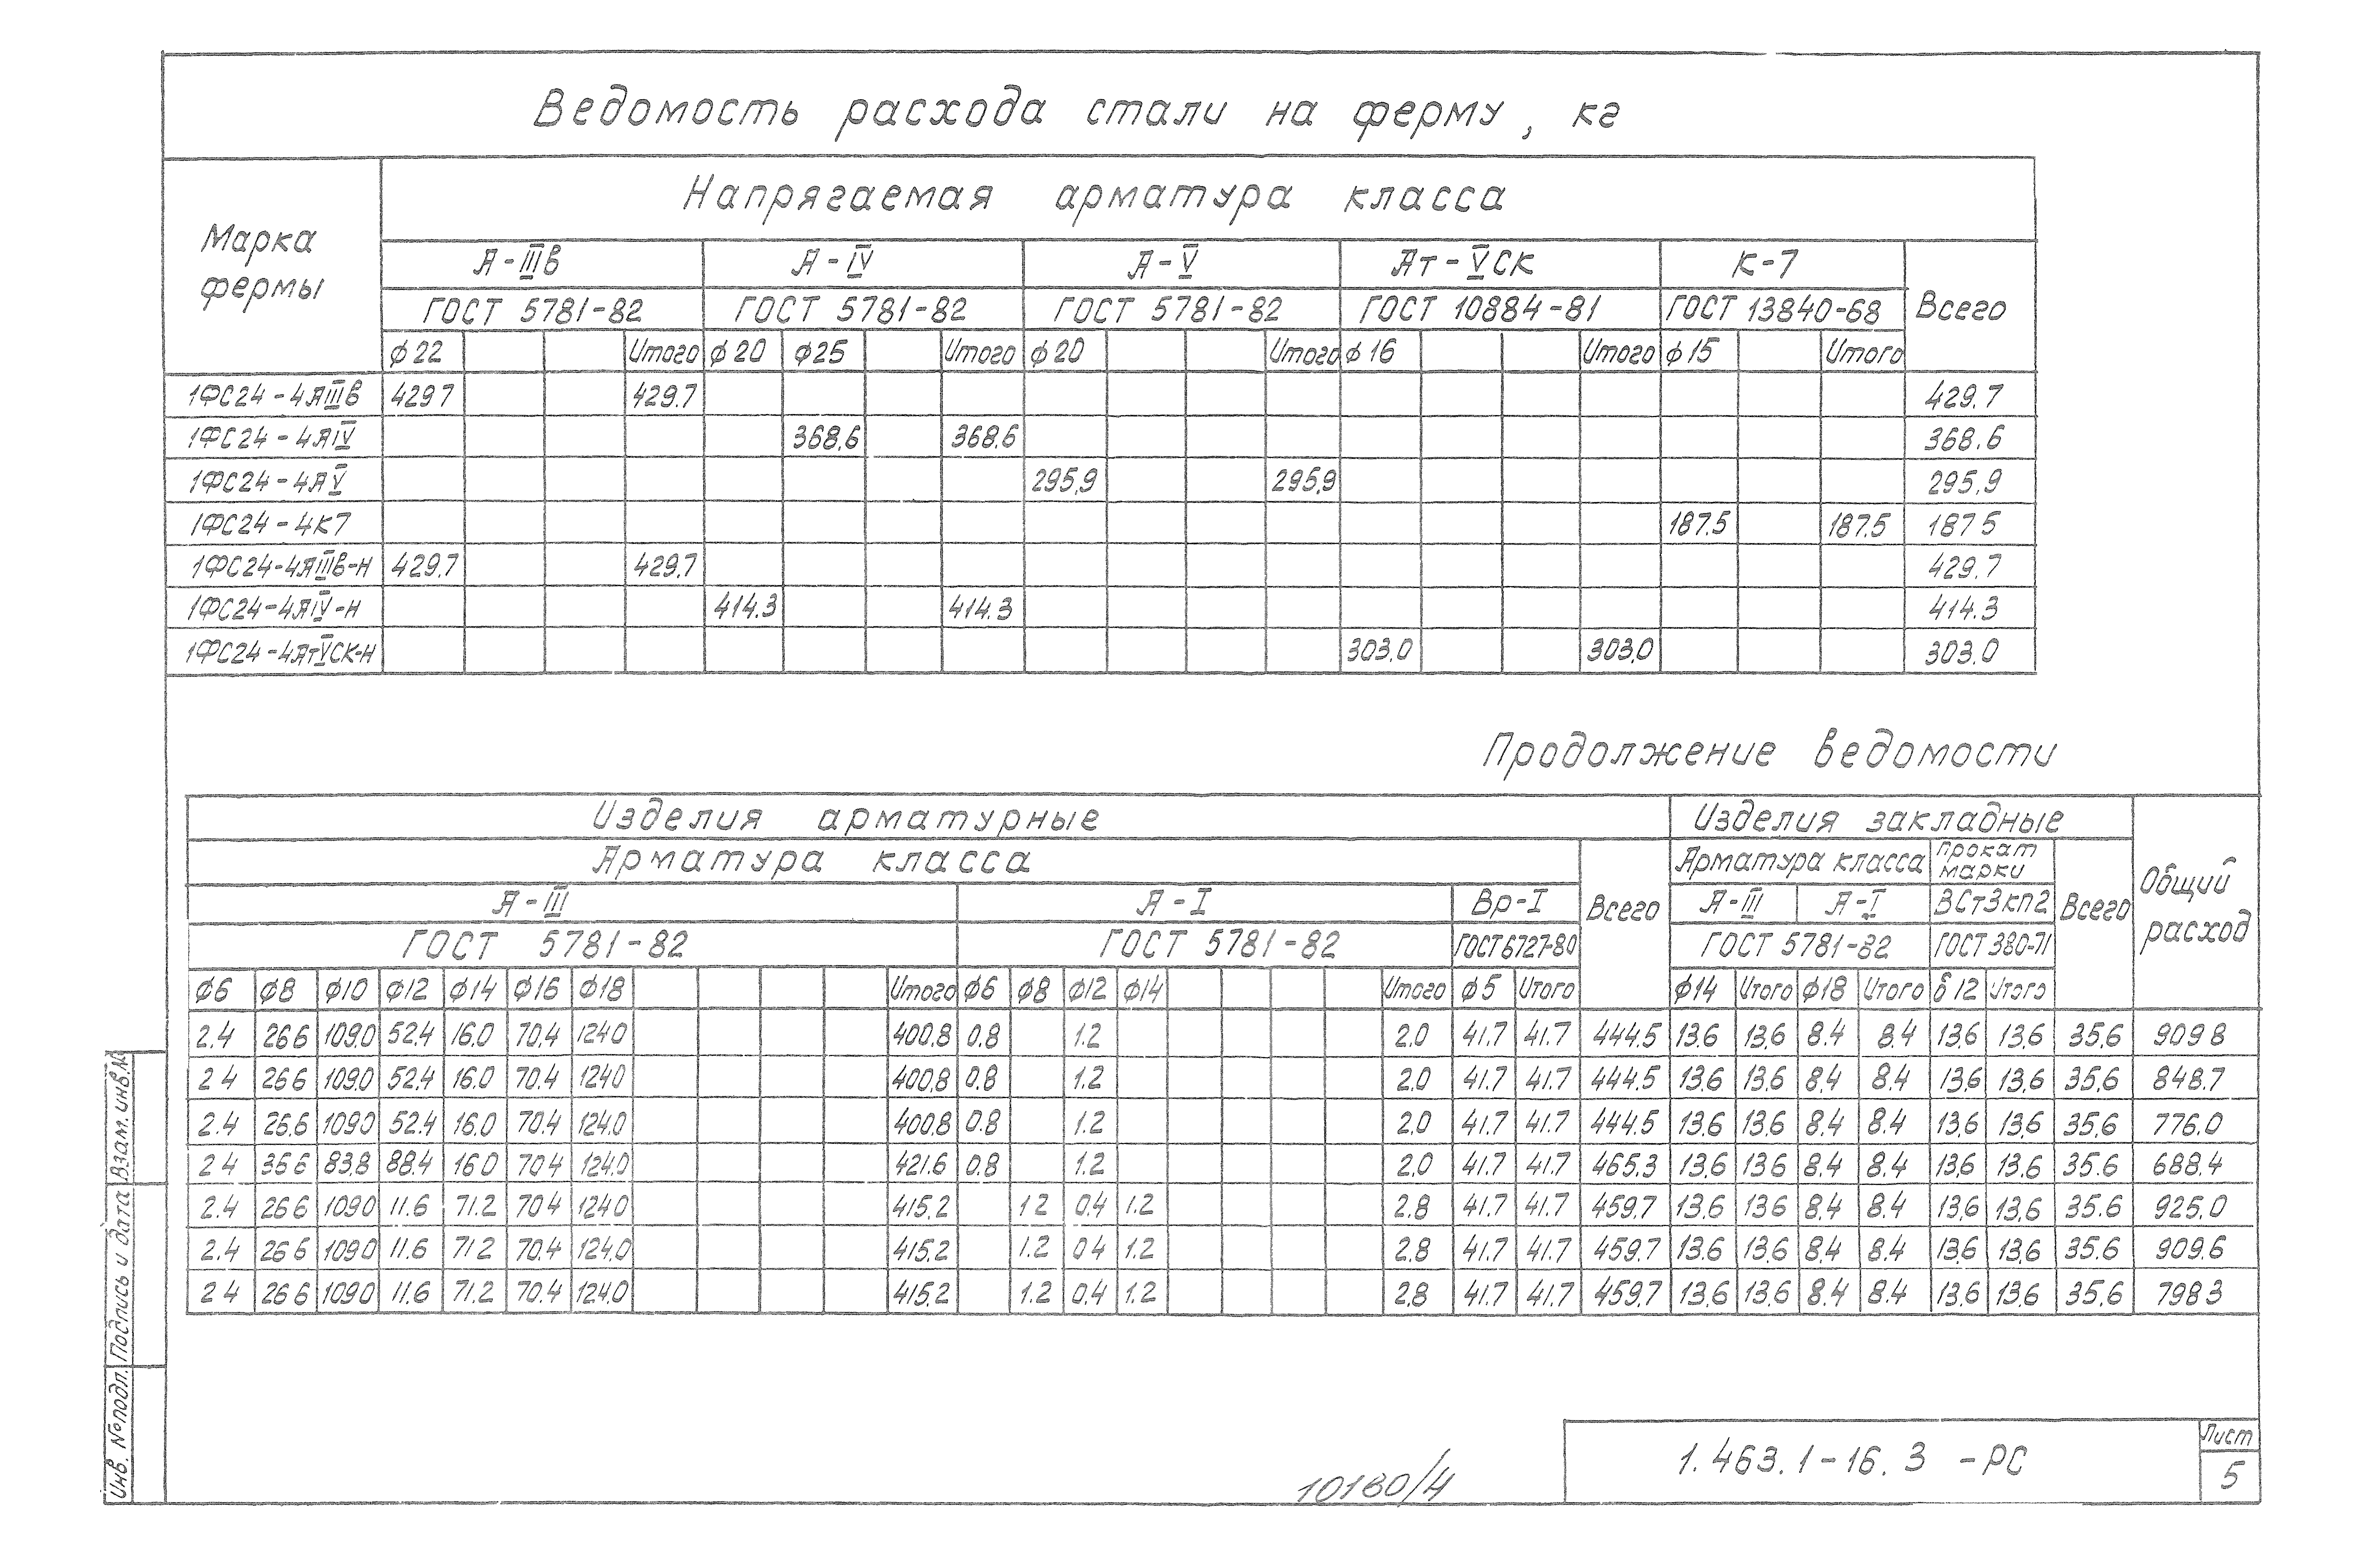 Ведомость расхода стали на ферму, кг
Марка фермы
Напрягаемая арматура класса
А-IIIв А-IV А-V Ат-VСК К-7
Всего
ГОСТ 5781-82 ГОСТ 5781-82 ГОСТ 5781-82 ГОСТ 10884-81 ГОСТ 13840-68
ф22 Итого ф20 ф25 Итого ф20 Итого ф16 Итого ф15 Итого
1ФС24-4АIIIв 429 7 429.7 429.7
1ФС24-4АIV 368,6 368.6 368.6
1ФС24-4АV 295,9 295,9 295,9
1ФС24-4К7 187.5 187.5 187 5
1ФС24-4АIIIв-Н 429,7 429,7 429.7
1ФС24-4АIV-Н 414.3 414.3 414.3
1ФС24-4АтVСК-Н 303,0 303,0 303.0
Продолжение ведомости
Изделия арматурные Изделия закладные
Общий расход
Арматура класса Всего Арматура класса Прокат марки Всего
А-III А-I Вр-I А-III А-I ВСт3кп2
ГОСТ 5781-82 ГОСТ 5781-82 ГОСТ6727-80 ГОСТ 5781-82 ГОСТ 380-71
ф6 ф8 ф10 ф12 ф14 ф16 ф18 Итого ф6 ф8 ф12 ф14 Итого ф5 Итого ф14 Итого ф18 Итого δ12 Итого
2.4 26 6 109.0 52.4 16.0 70.4 124 0 400.8 0.8 1.2 2.0 41.7 41.7 444.5 13.6 13,6 8.4 8.4 13,6 13,6 35,6 909 8
2 4 26 6 109.0 52.4 16.0 70.4 124 0 400,8 0.8 1.2 2.0 41.7 41.7 444.5 13.6 13,6 8,4 8.4 13,6 13,6 35.6 848.7
2.4 26.6 109 0 52.4 16.0 70.4 124.0 400,8 0.8 1.2 2,0 41.7 41.7 444.5 13.6 13,6 8.4 8.4 13,6 13,6 35,6 776.0
2 4 36 6 83,8 88.4 16 0 70 4 124.0 421.6 0.8 1.2 2,0 41.7 41.7 465.3 13,6 13 6 8.4 8.4 13,6 13.6 35.6 688.4
2.4 26 6 109 0 11.6 71.2 70 4 124 0 415.2 1 2 0.4 1.2 2.8 41.7 41.7 459.7 13.6 13 6 8,4 8.4 13,6 13,6 35.6 925.0
2.4 26 6 109 0 11.6 71 2 70.4 124.0 415.2 1.2 0 4 1.2 2.8 41.7 41.7 459.7 13.6 13,6 8.4 8.4 13,6 13,6 35.6 909.6
2 4 26 6 109 0 11.6 71.2 70.4 124.0 415.2 1.2 0.4 1.2 2,8 41.7 41.7 459.7 13,6 13.6 8.4 8.4 13,6 13,6 35,6 798 3
Взам. инв.№
Подпись и дата
Инв. №подл.
10180/4
1.463.1-16.3 -РС
Лист
5